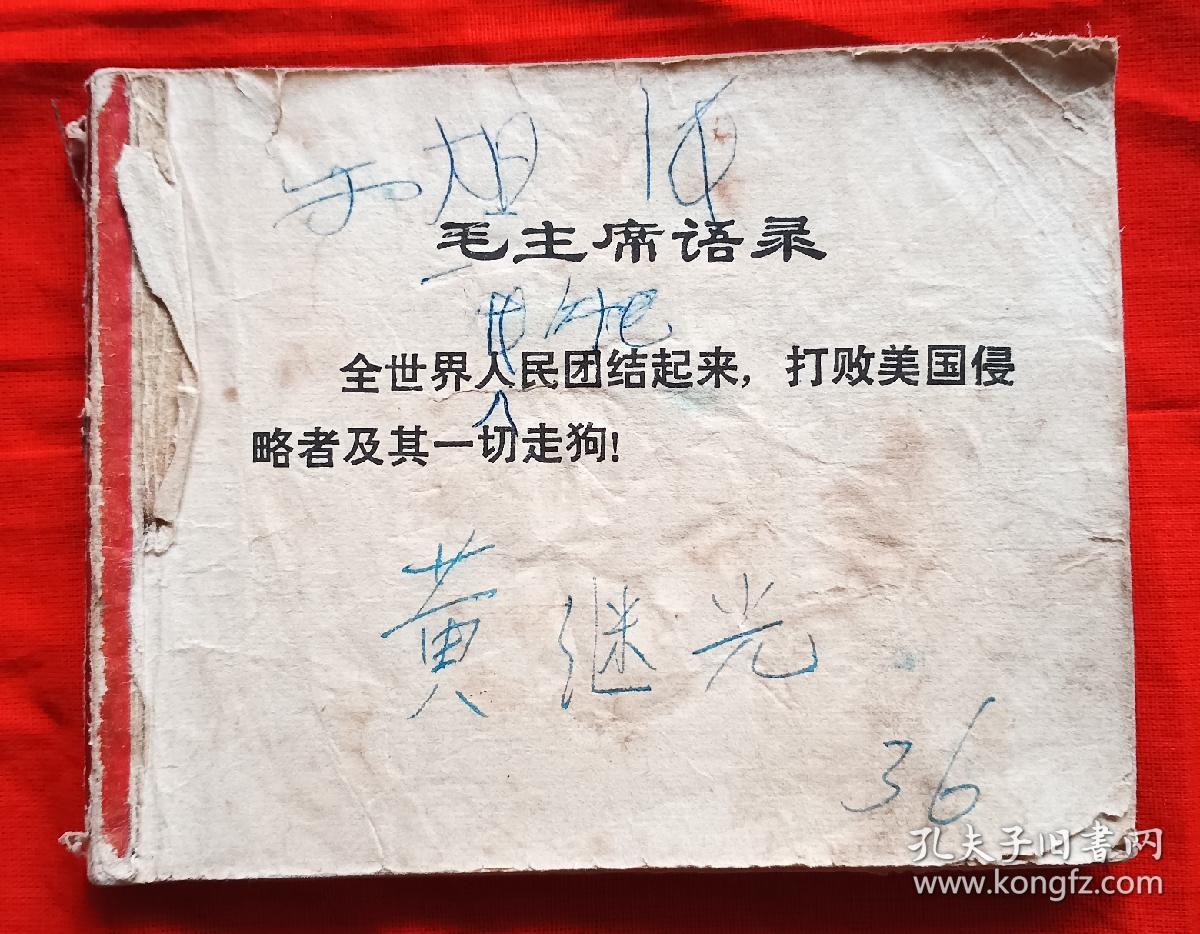 毛主席语录
全世界人民团结起来，打败美国侵
略者及其一切走狗！
黄继光
36
孔夫子旧书网
www.kongfz.com